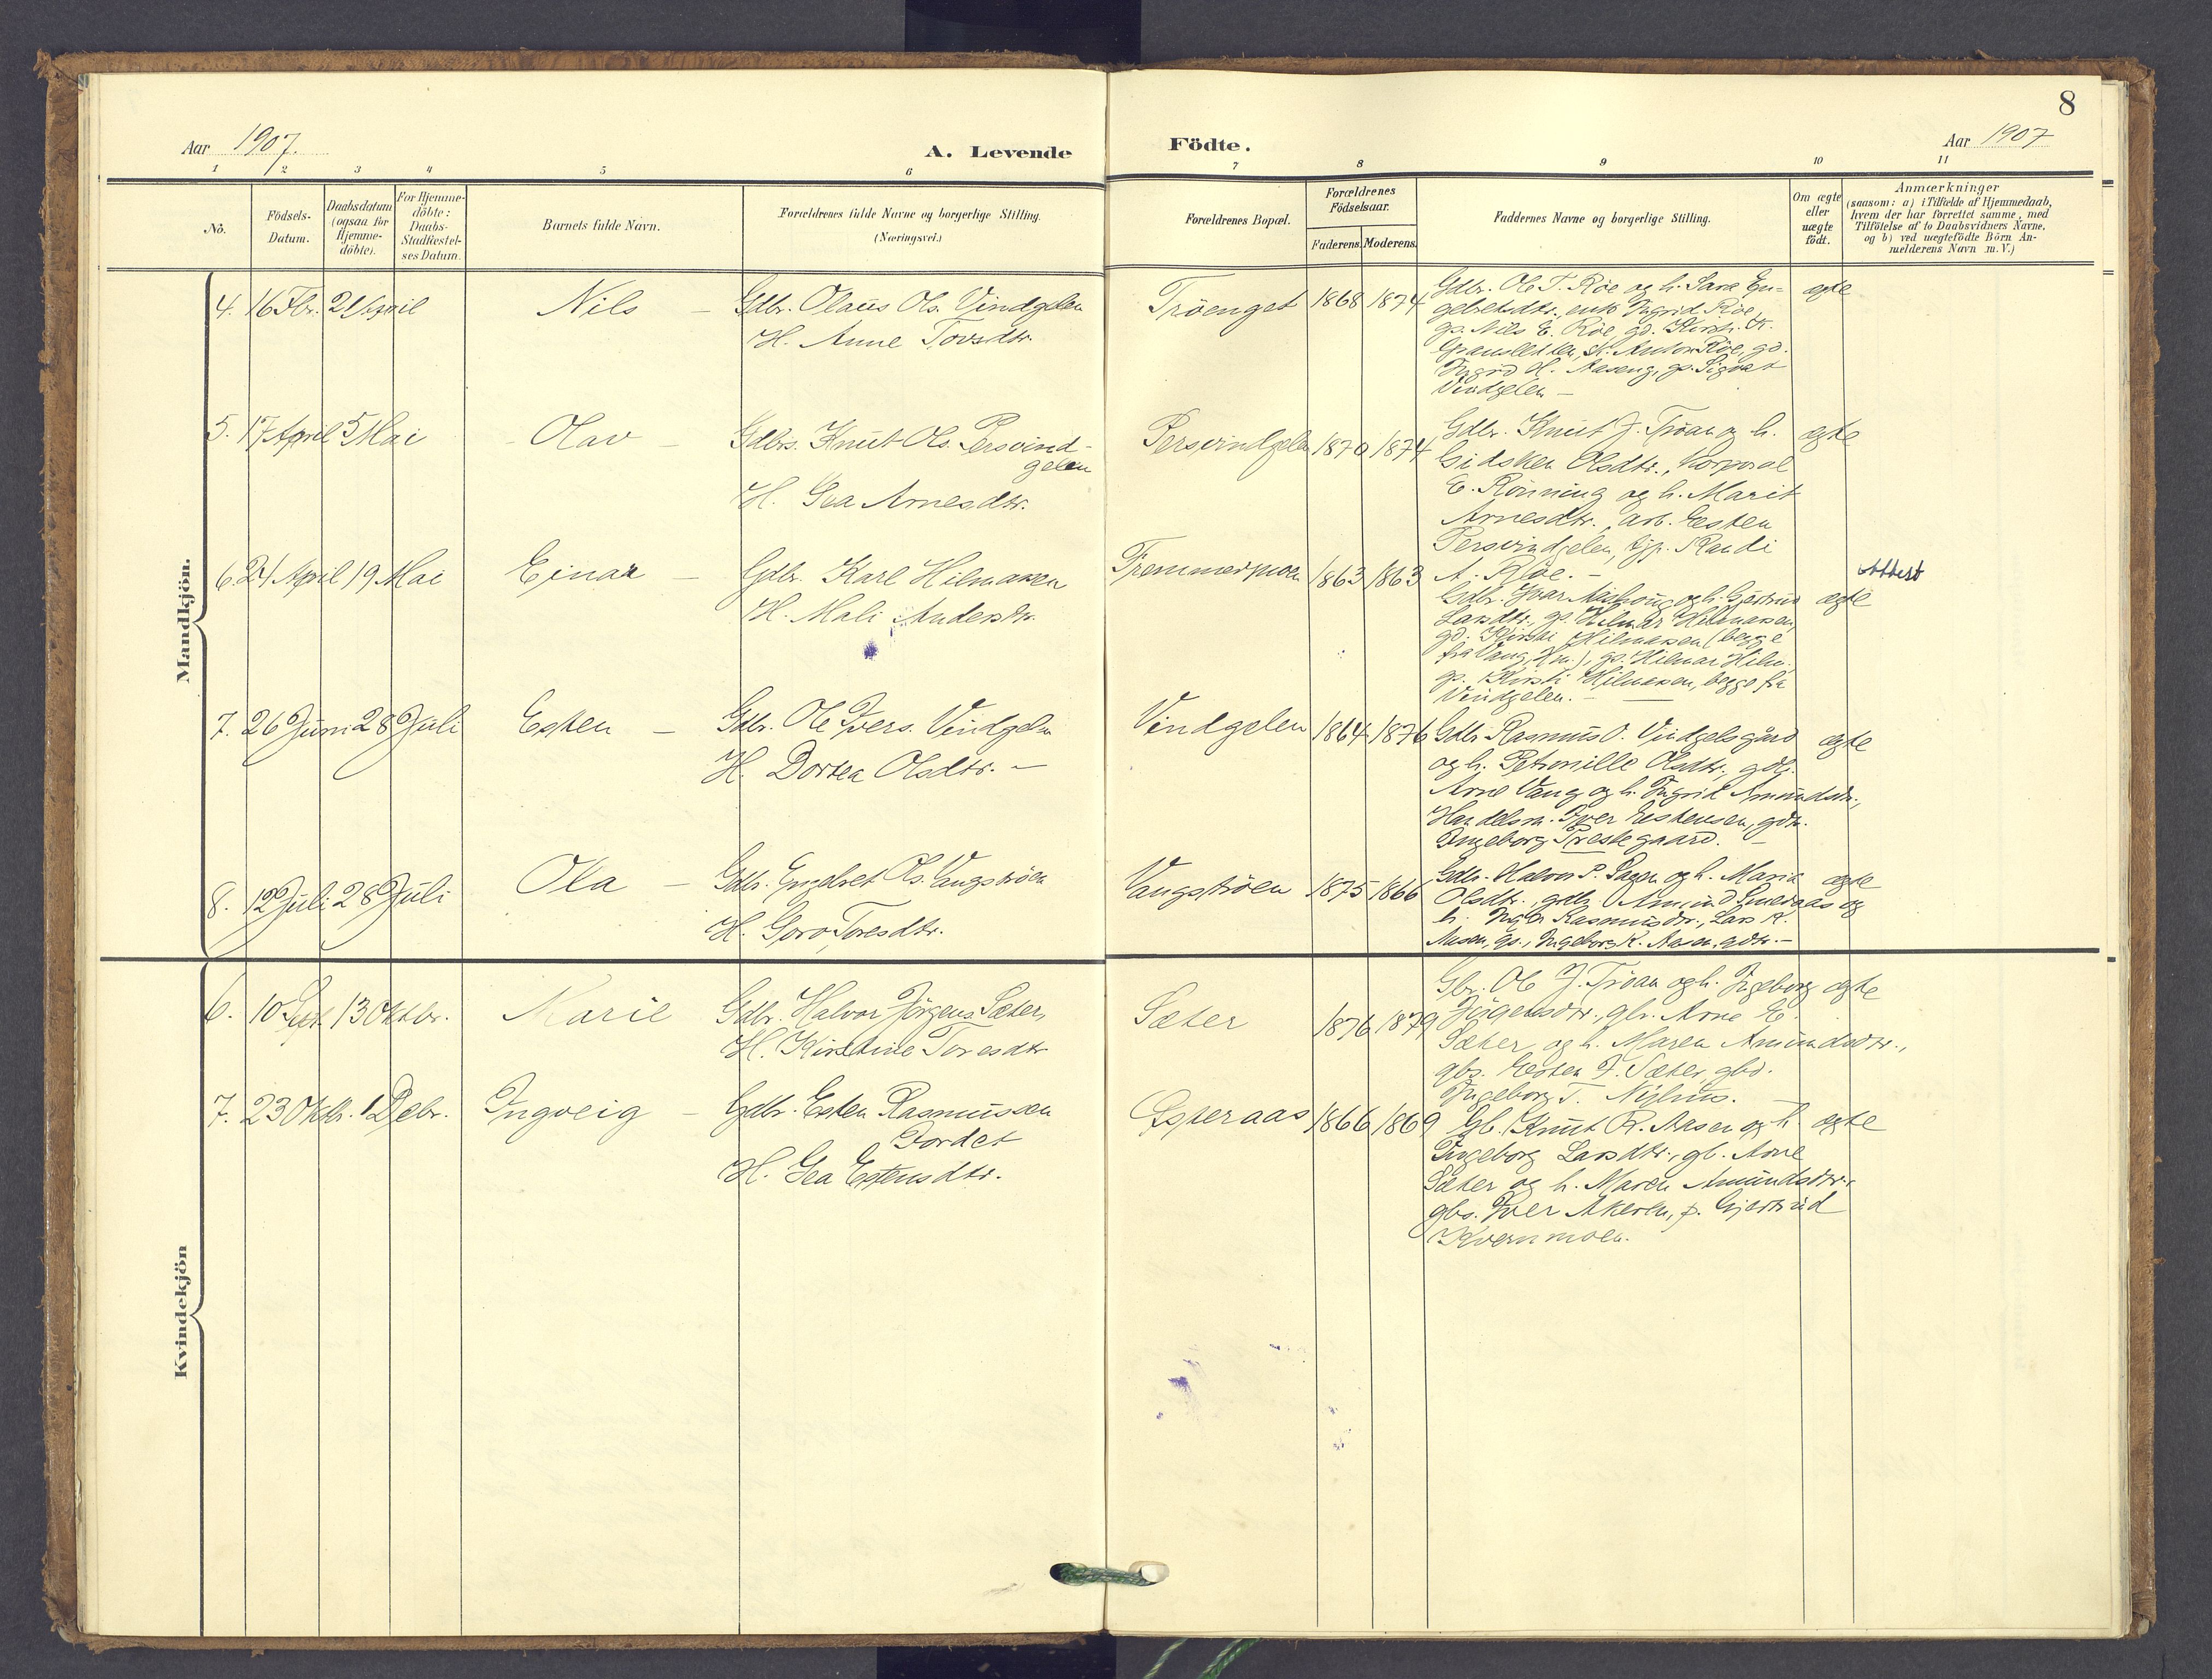 8
Aar 1907.
A. Levende
Födte.
Aar 1907
1 2 3 4 5 6 7 8 9 10 11
No.
Födsels-
Datum.
Daabsdatum
(ogsaa for
Hjemme-
döbte).
For Hjemme-
döbte:
Daabs-
Stadfæstel-
ses Datum.
Barnets fulde Navn.
Forældrenes fulde Navne og borgerlige Stilling.
(Næringsvei.)
Forældrenes Bopæl.
Forældrenes
Födselsaar.
Faderens. Moderens.
Faddernes Navne og borgerlige Stilling.
Om ægte
eller
uægte
födt.
Anmærkninger
(saasom: a) i Tilfælde af Hjemmedaab,
hvem der har forrettet samme, med
Tilföielse af to Daabsvidners Navne,
og b) ved uægtefödte Börn An-
melderens Navn m. V.)
Mandkjön.
4. 16 Fbr. 21 April Nils –
Gdbr. Olaus Ols. Vindgelen
H. Anne Tovsdtr.
Tröenget 1868 1874
Gdbr. Ole T. Röe og h. Sara En-
gebretsdtr., enk. Ingrid Röe,
gs. Nils E. Röe, gd. K.
St. Anton Röe, gd.
Ingrid H. Aaseng, gs. Sigvat
Vindgelen –
ægte
5. 17 April 5 Mai Olav –
Gdbr. Knut Ols. Persvind-
gelen
H. Gea Arnesdtr.
Persvindgelen 1870 1874
Gdbr. Knut J. Tröan og h.
Gidsken Olsdtr., Korporal
E. Rönning og h. Marit
Arnesdtr., arb. Esten
Persvindgelen, tjp. Randi
A. Röe. –
ægte
6. 24 April 19 Mai Einar –
Gdbr. Karl Hilmarsen
H. Mali Andersdtr.
Fremmermoen 1863 1863
Gdbr. Ivar Aashoug og h. Gjertrud
Larsdtr., gs. Hilmar Hilmarsen,
gd. Kirsti Hilmarsen (begge
fra Vang, Hm.), gs. Hilmar Hilm.
gp. Kirsti Hilmarsen, begge fra
Vindgelen. –
ægte
Attest
7. 26 Juni 28 Juli Esten –
Gdbr. Ole Ivers. Vindgelen
H. Dortea Olsdtr. –
Vindgelen 1864 1876
Gdbr. Rasmus O. Vindgelsgård
og h. Petronille Olsdtr., gdb.
Arne Vang og h. Ingrid Amundsdtr.,
Handelsm. Iver Estensen, gdtr.
Ingeborg Prestegaard. –
ægte
8. 12 Juli 28 Juli Ola –
Gdbr. Engebret Ols. Vangströen
H. Goro Toresdtr.
Vangströen 1875 1866
Gdbr. Halvor P. Sagen og h. Maria
Olsdtr., gdbr. Amund Smedaas og
h. Inger Rasmusdtr., Lars K.
Aasen, gs., Ingeborg K. Aasen, gdtr. –
ægte
Kvindekjön
6. 10 Sept. 13 Oktbr. Marie
Gdbr. Halvor Jörgens. Sæter,
H. Kirstine Toresdtr
Sæter 1876 1879
Gbr. Ole J. Tröan og h. Ingeborg
Jörgensdtr., gbr. Arne E.
Sæter og h. Maren Amundsdtr.,
gbs. Esten J. Sæter, gbd.
Ingeborg T. Nyhus.
ægte
7. 23 Oktbr. 1 Debr. Ingveig –
Gdbr. Esten Rasmussen
Jordet
H. Gea Estensdtr.
Esperaas 1866 1869
Gb. Knut R. Aasen og h.
Ingeborg Larsdtr., gb. Arne
Sæter og h. Maren Amundsdtr.,
gbs. Iver Akeren, p. Gjertrud
Kvernmoen.
ægte